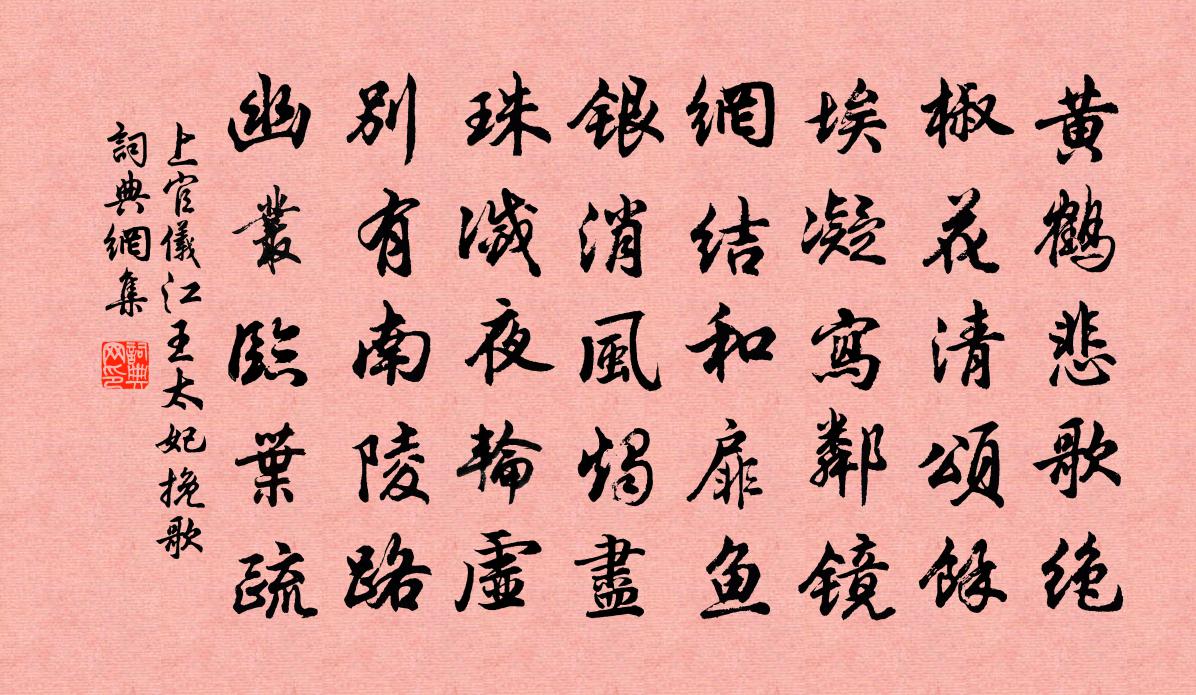 黄鶴悲歌絶
椒花清頌餘
埃凝寫鄰鏡
網結和扉魚
銀消風燭盡
珠滅夜輪虛
別有南陵路
幽叢臨葉疏
上官儀江王太妃挽歌
詞典網集
詞典网印